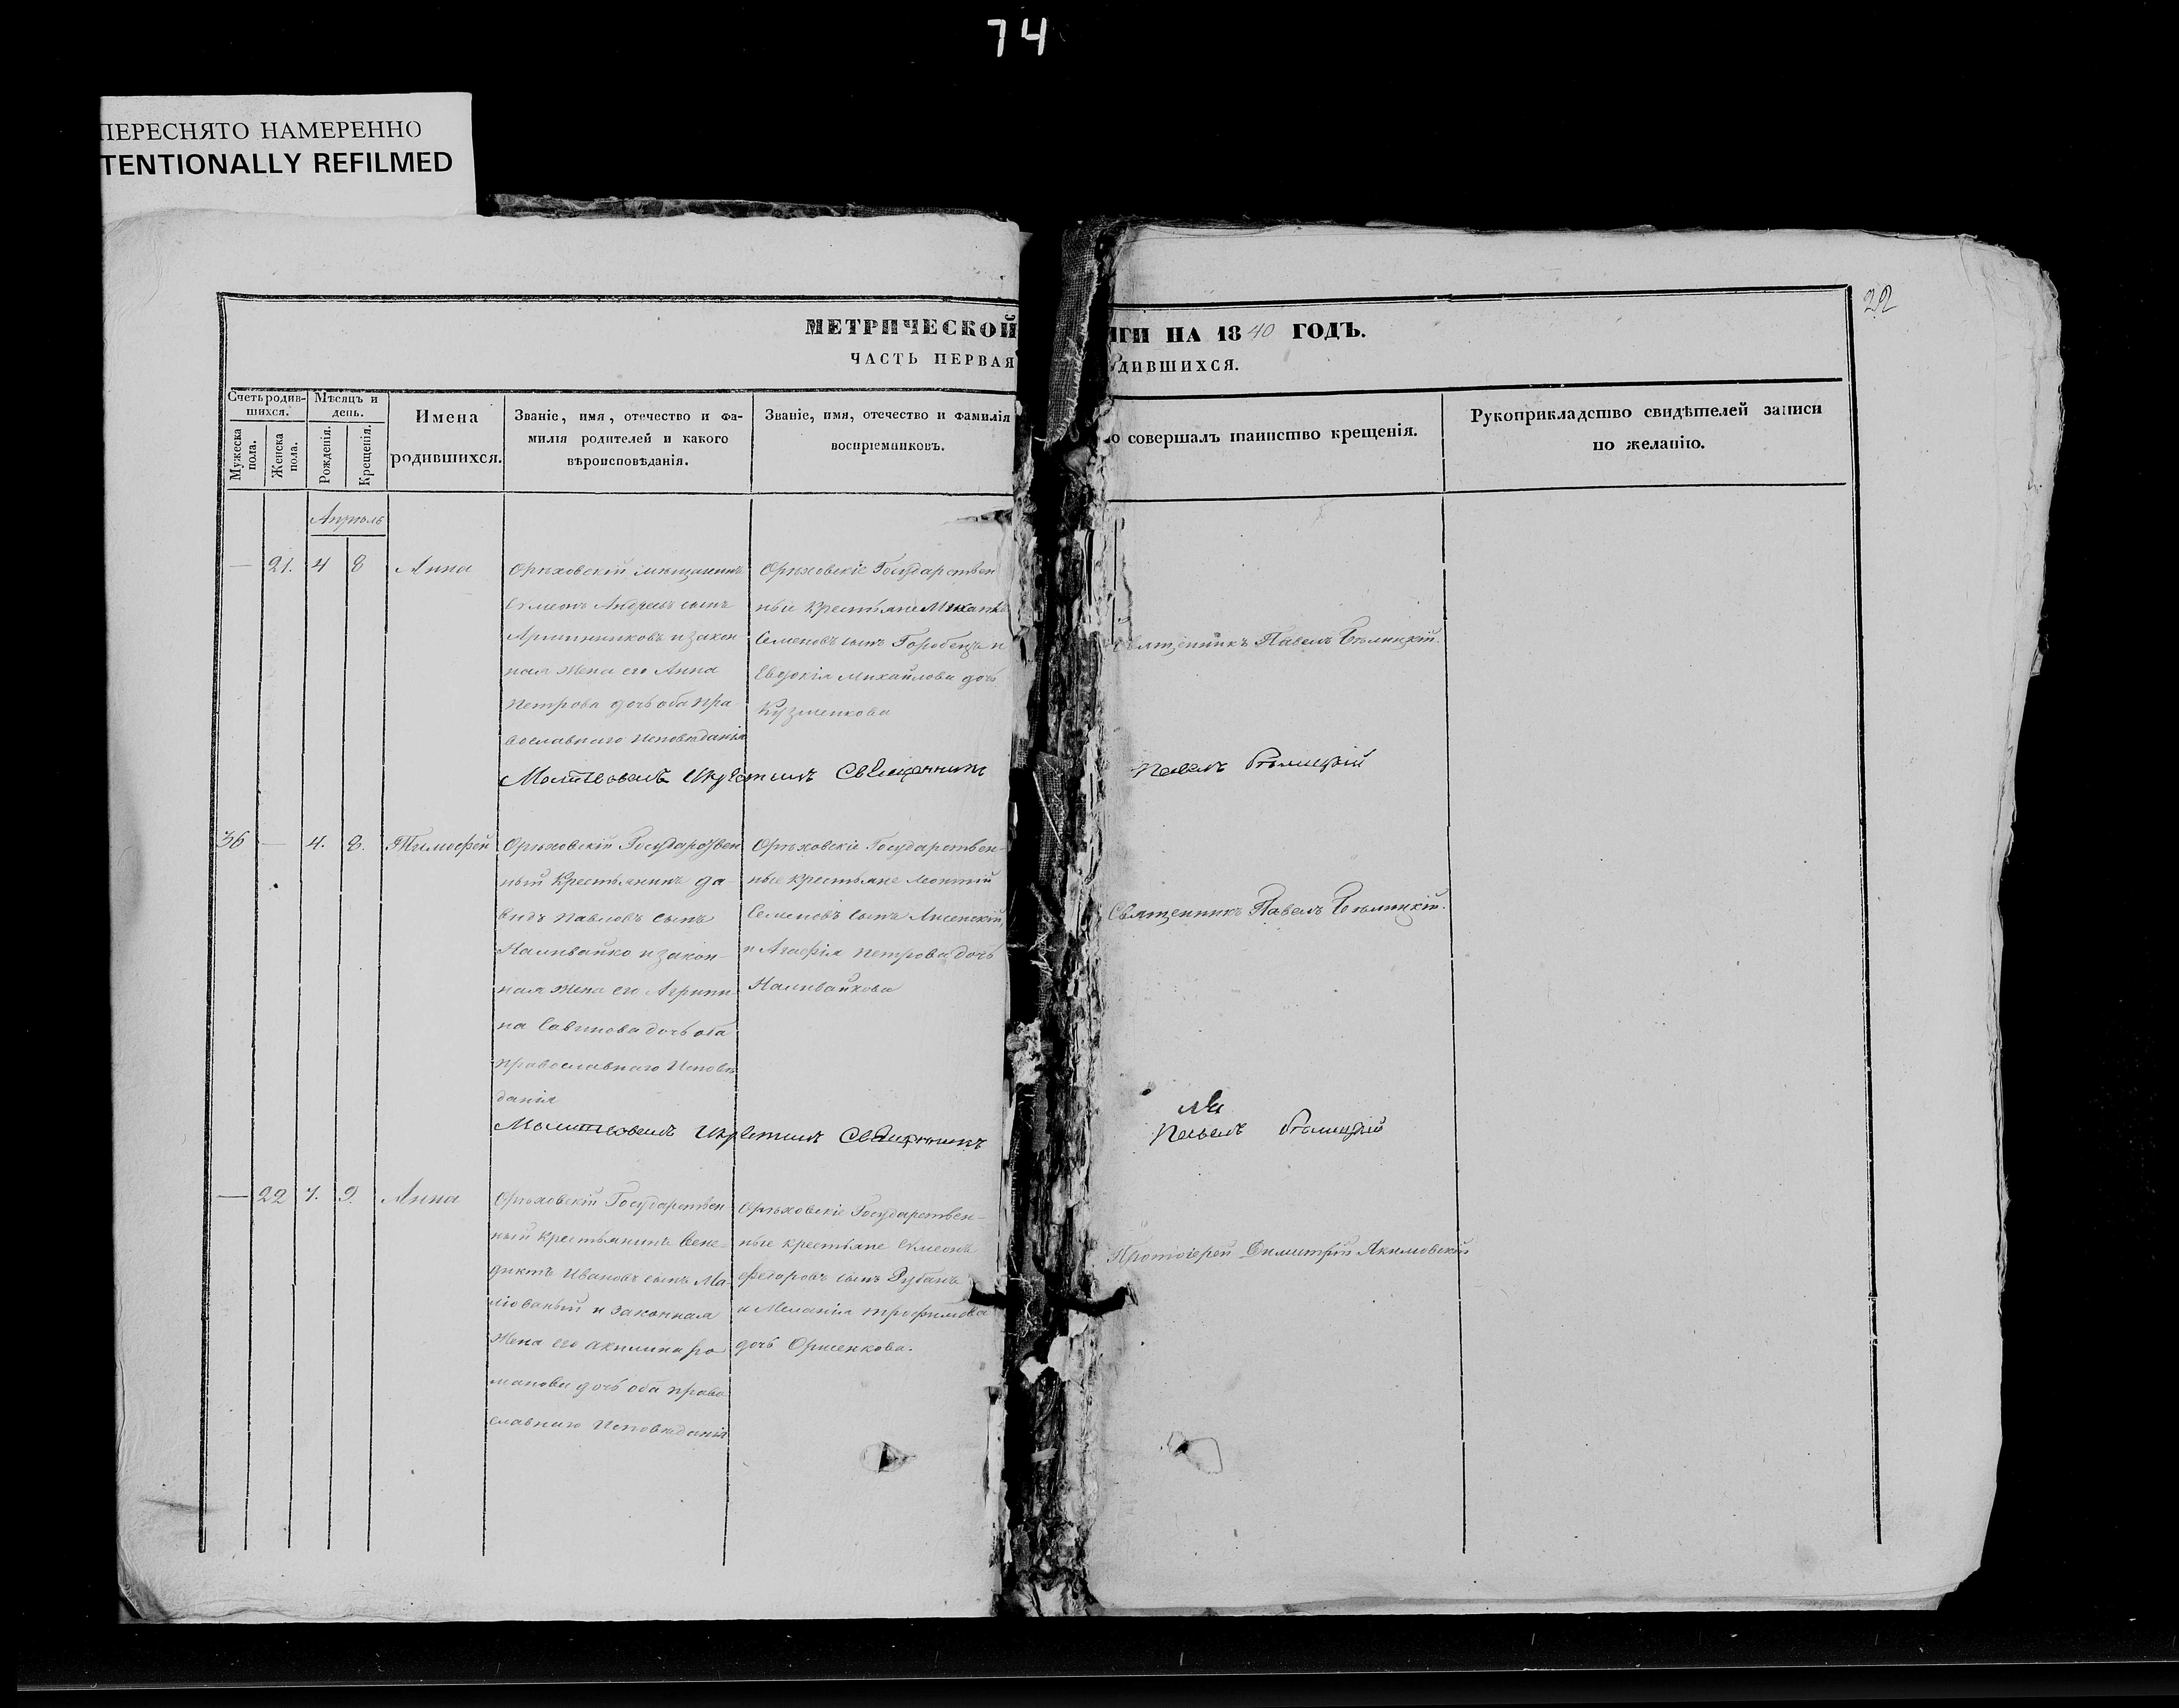 74
ПЕРЕСНЯТО НАМЕРЕННО
TENTIONALLY REFILMED
22
МЕТРИЧЕСКОЙ ИГИ НА 1840 ГОДЪ.
ЧАСТЬ ПЕРВАЯ ДИВШИХСЯ.
Счетъ родив-
шихся.
Мужеска
пола.
Женска
пола.
Мѣсяцъ и
день.
Рожденія.
Крещенія.
Имена
родившихся.
Званіе, имя, отечество и фа-
милія родителей и какого
вѣроисповѣданія.
Званіе, имя, отечество и фамилія
воспріемниковъ.
о совершалъ таинство крещенія.
Рукоприкладство свидѣтелей записи
по желанію.
Апрѣль
— 21. 4 8 Анна
Орѣховскій мѣщанинъ
Сѵмеонъ Андреевъ сынъ
и закон
ная жена его Анна
Петрова дочь оба пра
вославнаго Исповѣданія
Орѣховскіе Государствен
ные крестьяне Михаилъ
Семеновъ сынъ Горобецъ и
Евдокія Михайлова дочь
Кузменкова
Священникъ Павелъ Бѣлицкій.
Молитвовалъ Икрестилъ Священникъ Павелъ Бѣлицкій
36 — 4. 8. Тимофей
Орѣховскій Государствен
ный Крестьянинъ Да-
видъ Павловъ сынъ
Наливайко и закон-
ная жена его Агрипи-
на Савинова дочь оба
православнаго Исповѣ
данія
Орѣховскіе Государствен-
ные крестьяне Леонтій
Семеновъ сынъ Лисенскій,
и Агафія Петрова дочь
Наливайкова
Священникъ Павелъ Бѣлицкій.
Молитвовалъ Икрестилъ Священникъ Павелъ Бѣлицкій
— 22 7. 9. Анна
Орѣховскій Государствен
ный крестьянинъ Вене-
диктъ Ивановъ сынъ Ма-
лёваный и законная
жена его Акилина Ро
манова дочь оба право
славнаго Исповѣданія
Орѣховскіе Государствен-
ные крестьяне Сѵмеонъ
Федоровъ сынъ Рубанъ
и Меланія Трофимова
дочь
Протоіерей Димитрій Акимовскій